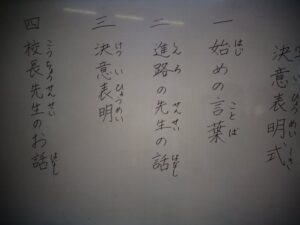 決意表明式
一 始めの言葉
二 進路の先生の話
三 決意表明
四 校長先生のお話